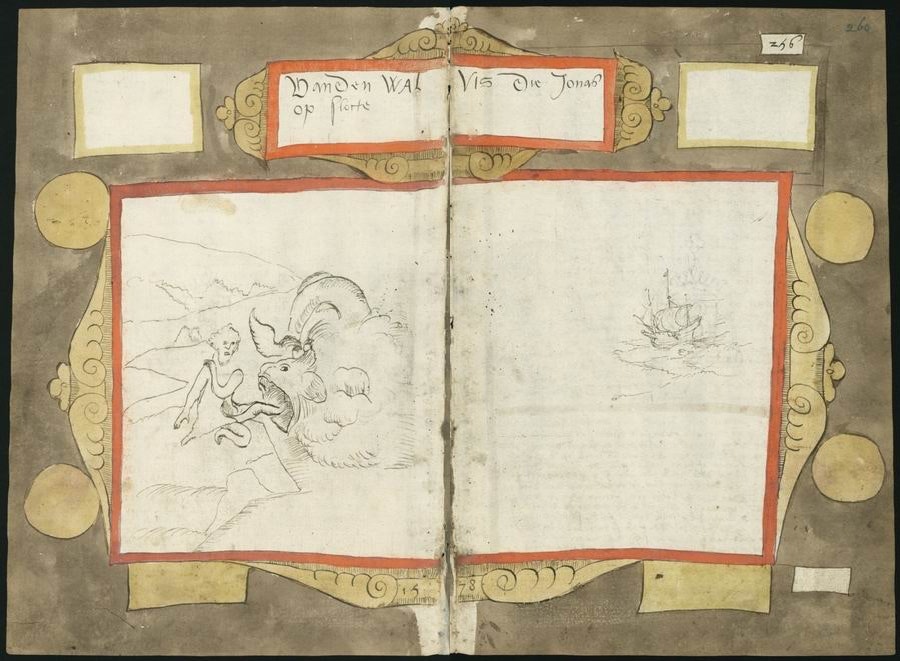 260
256
VanDen WAL VIS Die Jonas
op slocte
15 78